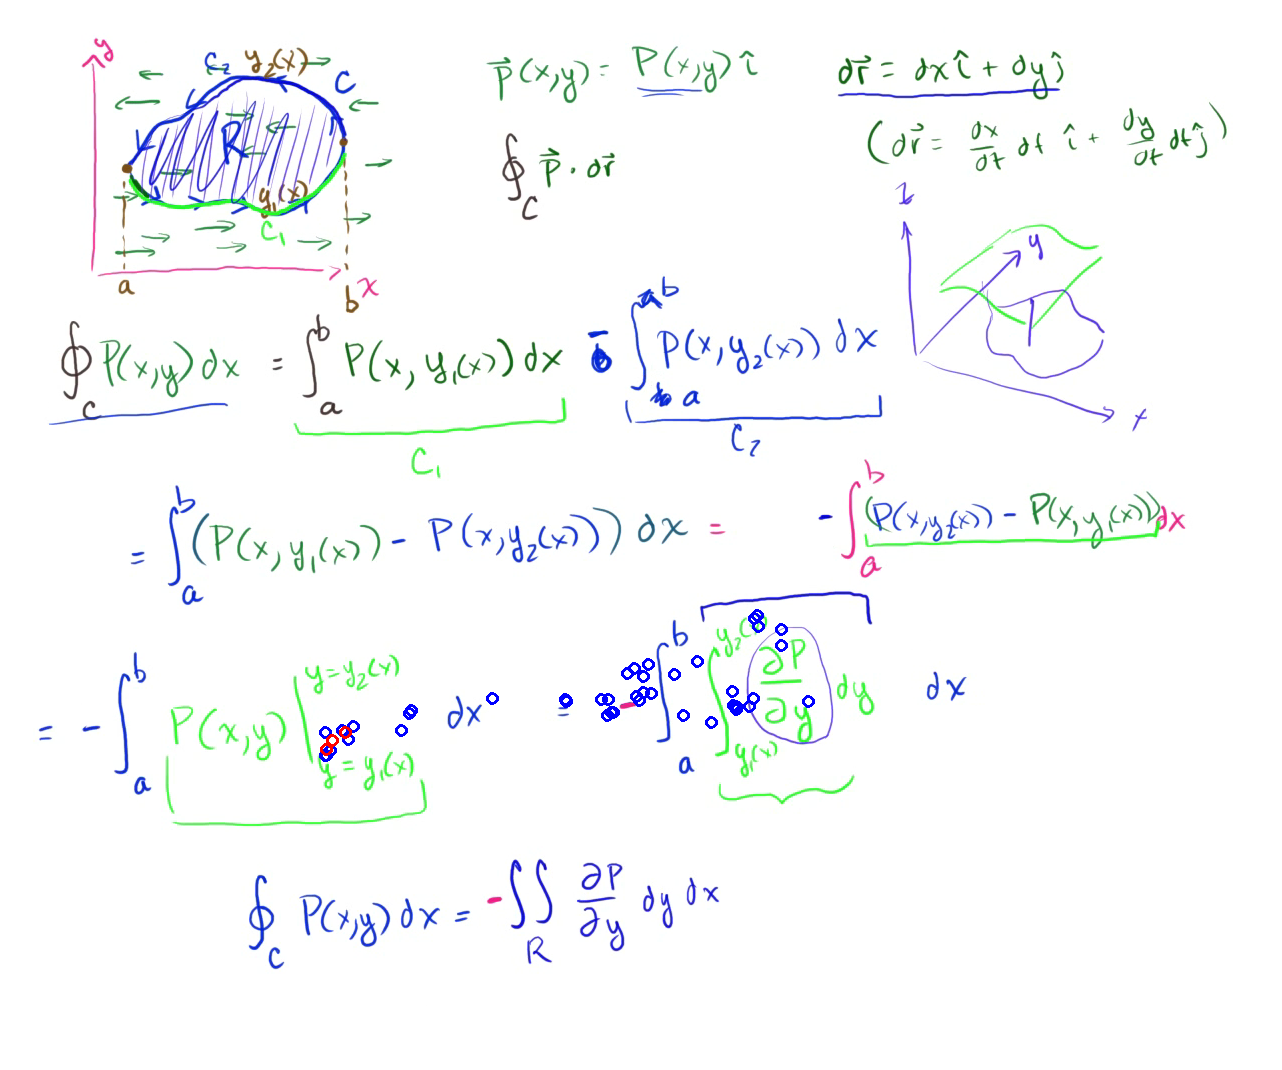 y
C₂ y₂(x)
C
R
y₁(x)
C₁
a b x
p⃗(x,y) = P(x,y) î
dr⃗ = dx î + dy ĵ
(dr⃗ = dx/dt dt î + dy/dt dt ĵ)
∮_C p⃗ · dr⃗
z
y
x
∮_C P(x,y) dx = ∫_a^b P(x, y₁(x)) dx - ∫_a^b P(x, y₂(x)) dx
C₁ C₂
= ∫_a^b (P(x, y₁(x)) - P(x, y₂(x))) dx = - ∫_a^b (P(x, y₂(x)) - P(x, y₁(x))) dx
= - ∫_a^b P(x,y) |_{y = y₁(x)}^{y = y₂(x)} dx = - ∫_a^b ∫_{y₁(x)}^{y₂(x)} ∂P/∂y dy dx
∮_C P(x,y) dx = - ∬_R ∂P/∂y dy dx